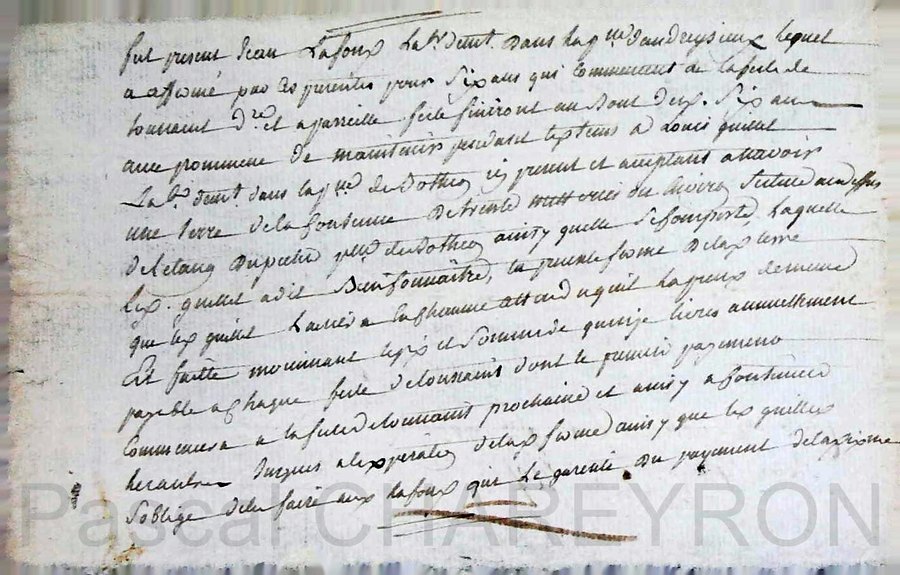 fut present Jean Lafoux Lab.r demt. dans la p.sse d'andreysieux lequel
a affermé par ces presentes pour Six ans qui commencent de la feste de
toussaint d.re et a pareille feste finiront au bout des.x Six ans
avec promesse de maintenir pendant lex tems a Louis quillet
Lab.r demt dans la p.sse de Bothéo icy present et acceptant assavoir
une terre de la contenue de trente Située au dessus
de l'etang p.sse de Bothéo ainsy quelle Se Comporte, Laquelle
lex. quillet a dit Bien Connaitre, la presente ferme de lax terre
que lex quillet attendu qu'il
Est faitte moiennant le prix et Somme de quinze livres annuellement
payable a Chaque feste de toussaint dont le premier payement
Commencera a la feste de toussaint prochaine et ainsy a Continuer
Jusques a lexpiration de lax ferme ainsy que lex quillet
S'oblige de le faire aux Lafoux qui du payement de la
Pascal CHAREYRON